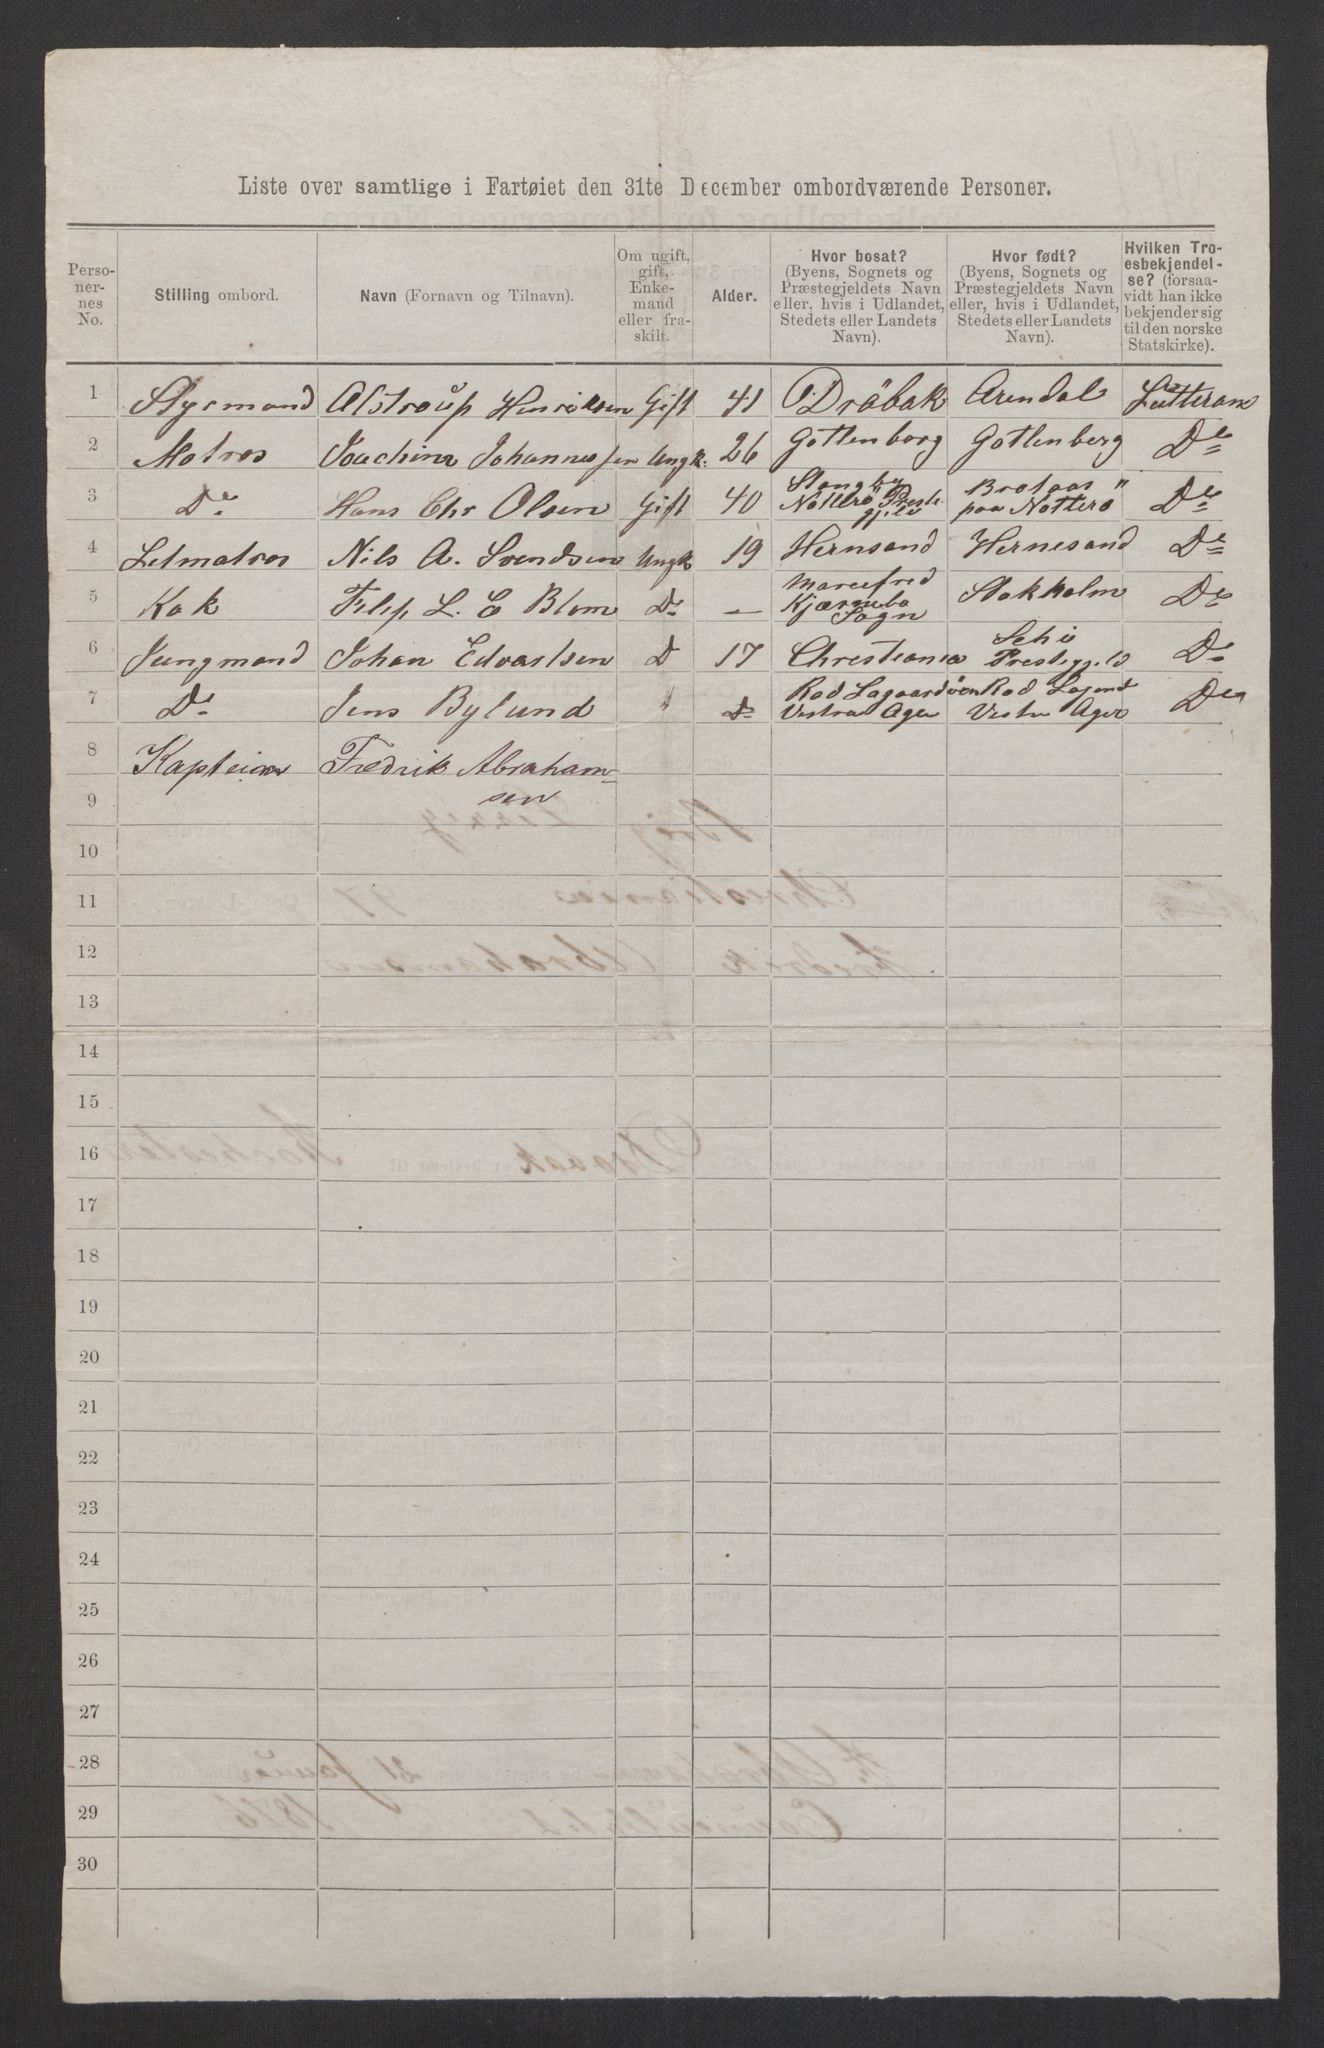 Liste over samtlige i Fartøiet den 31te December ombordværende Personer.
Perso-
ner-
nes
No.
Stilling ombord.
Navn (Fornavn og Tilnavn).
Om ugift,
gift,
Enke-
mand
eller fra-
skilt.
Alder.
Hvor bosat?
(Byens, Sognets og
Præstegjeldets Navn
eller, hvis i Udlandet,
Stedets eller Landets
Navn).
Hvor født?
(Byens, Sognets og
Præstegjeldets Navn
eller, hvis i Udlandet,
Stedets eller Landets
Navn).
Hvilken Tro-
esbekjendel-
se? (forsaa-
vidt han ikke
bekjender sig
til den norske
Statskirke).
1 Styrmand Alstroup Henriksen Gift 41 Dröbak Arendal
2 Matros Joachim Johannesen Ungk. 26 Gottenborg Gotlenberg De
3 De Hans Chr Olsen Gift 40 Nötterö Preste- gjeld paa Nötterö De
4 Letmatros Nils A. Svendsen Ungk 19 Hernsand Hernesand De
5 Kok Filip L. E Blom De — Sogn Stokholm De
6 Jungmand Johan Edvartsen D 17 Christiania Prestegjeld De
7 De Jens Bylund De Vestra Ager Vestre Ager De
8 Kaptein Fredrik Abraham-
sen
9
10
11
12
13
14
15
16
17
18
19
20
21
22
23
24
25
26
27
28
29
30